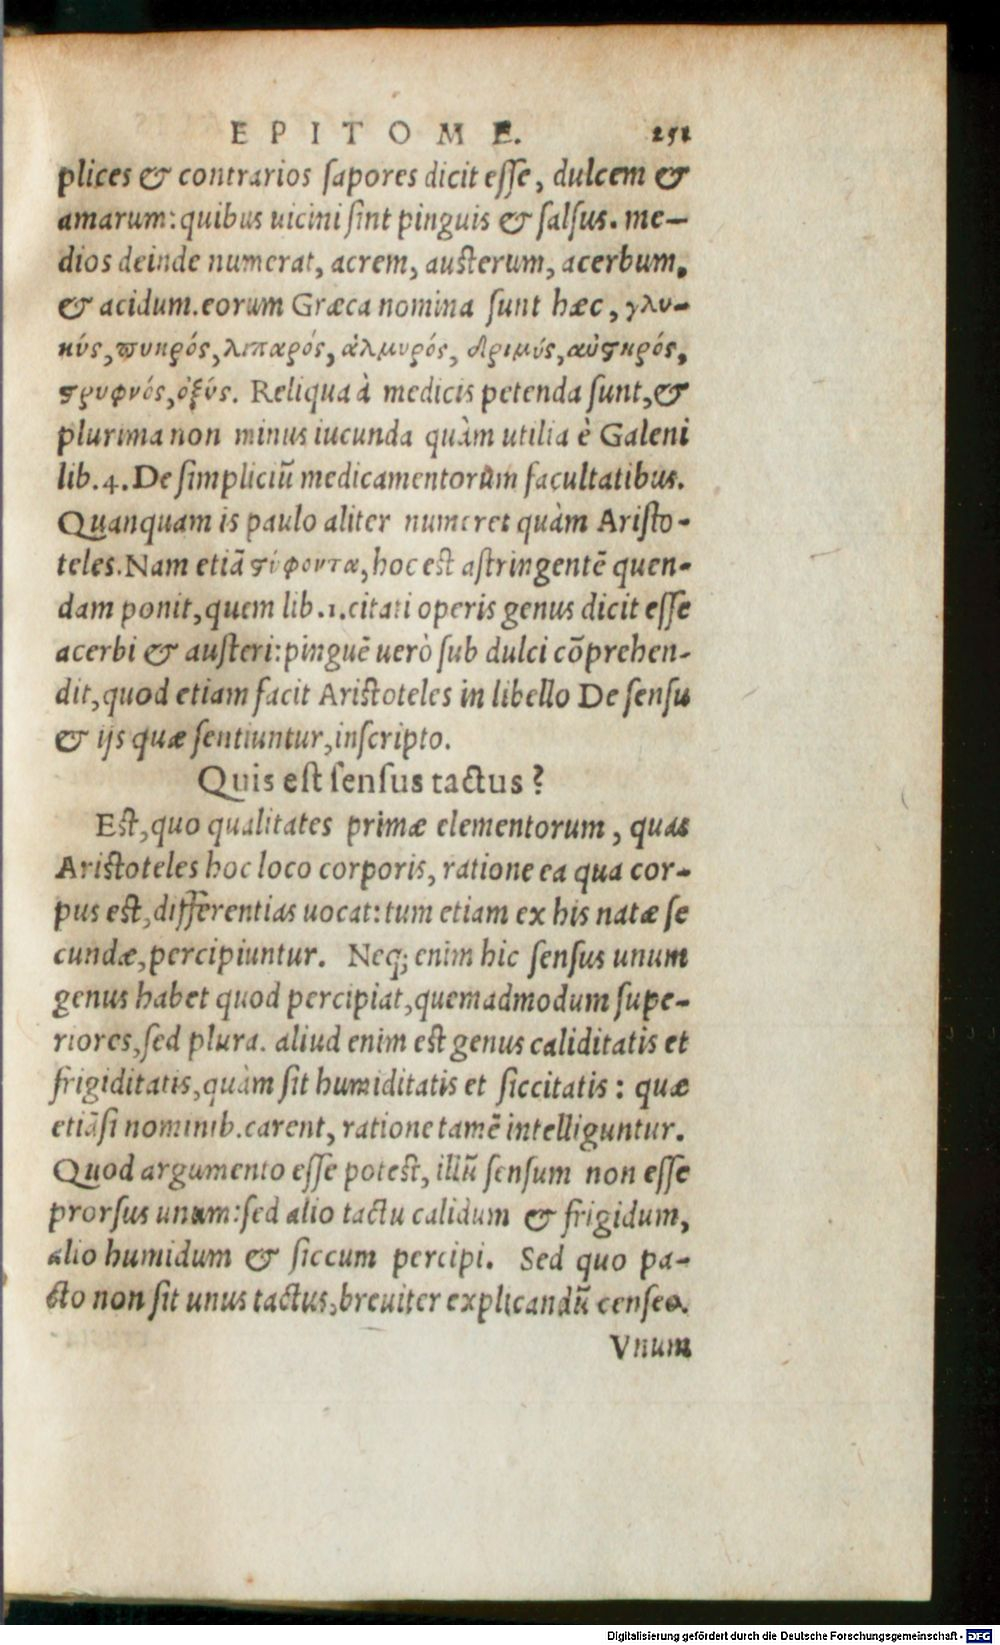 EPITOME. 251
plices & contrarios sapores dicit esse, dulcem &
amarum: quibus uicini sint pinguis & salsus. me-
dios deinde numerat, acrem, austerum, acerbum,
& acidum. eorum Græca nomina sunt hæc, γλυ-
κύς, πυκρός, λιπαρός, ἁλμυρός, δριμύς, αὐϛηρός,
ϛρυφνός, ὀξύς. Reliqua à medicis petenda sunt, &
plurima non minus iucunda quàm utilia è Galeni
lib. 4. De simpliciū medicamentorum facultatibus.
Quanquam is paulo aliter numeret quàm Aristo-
teles. Nam etiā ϛύφοντα, hoc est astringentē quen-
dam ponit, quem lib. 1. citati operis genus dicit esse
acerbi & austeri: pinguē uerò sub dulci cōprehen-
dit, quod etiam facit Aristoteles in libello De sensu
& ijs quæ sentiuntur, inscripto.
Quis est sensus tactus?
Est, quo qualitates primæ elementorum, quas
Aristoteles hoc loco corporis, ratione ea qua cor-
pus est, differentias uocat: tum etiam ex his natæ se
cundæ, percipiuntur. Neq; enim hic sensus unum
genus habet quod percipiat, quemadmodum supe-
riores, sed plura. aliud enim est genus caliditatis et
frigiditatis, quàm sit humiditatis et siccitatis: quæ
etiāsi nominib. carent, ratione tamē intelliguntur.
Quod argumento esse potest, illū sensum non esse
prorsus unum: sed alio tactu calidum & frigidum,
alio humidum & siccum percipi. Sed quo pa-
cto non sit unus tactus, breuiter explicandū censeo.
Vnum
Digitalisierung gefördert durch die Deutsche Forschungsgemeinschaft - DFG